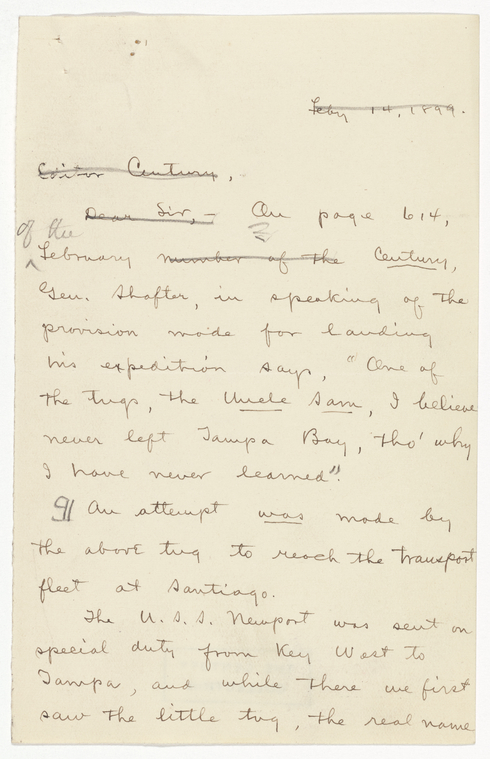 Feby 14, 1899.
Editor Century,
Dear Sir, - On page 614,
of the
February number of the Century,
Gen. Shafter, in speaking of the
provision made for landing
his expedition says, "One of
the tugs, the Uncle Sam, I believe
never left Tampa Bay, tho' why
I have never learned".
¶ An attempt was made by
the above tug to reach the transport
fleet at Santiago.
The U.S.S. Newport was sent on
special duty from Key West to
Tampa, and while there we first
saw the little tug, the real name